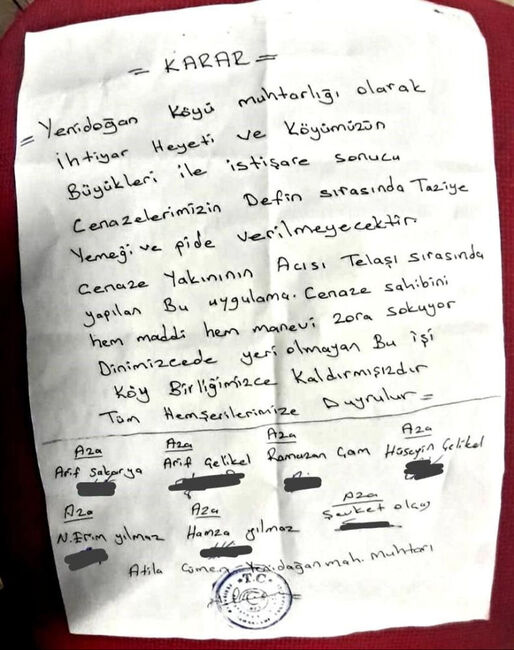 = KARAR =
= Yenidoğan Köyü muhtarlığı olarak
ihtiyar Heyeti ve Köyümüzün
Büyükleri ile istişare sonucu
Cenazelerimizin Defin sırasında Taziye
Yemeği ve pide verilmeyecektir.
Cenaze Yakınının Acısı Telaşı sırasında
yapılan Bu uygulama. Cenaze sahibini
hem maddi hem manevi zora sokuyor
Dinimizcede yeri olmayan Bu işi
Köy Birliğimizce Kaldırmışızdır
Tüm Hemşerilerimize Duyrulur =
Aza Aza Aza Aza
Arif Sakarya Arif Çelikel Ramazan Çam Hüseyin Çelikel
Aza Aza Aza
N. Erim yılmaz Hamza yılmaz Şevket olgaç
Atila Çimen Yenidoğan mah. muhtarı
T.C.